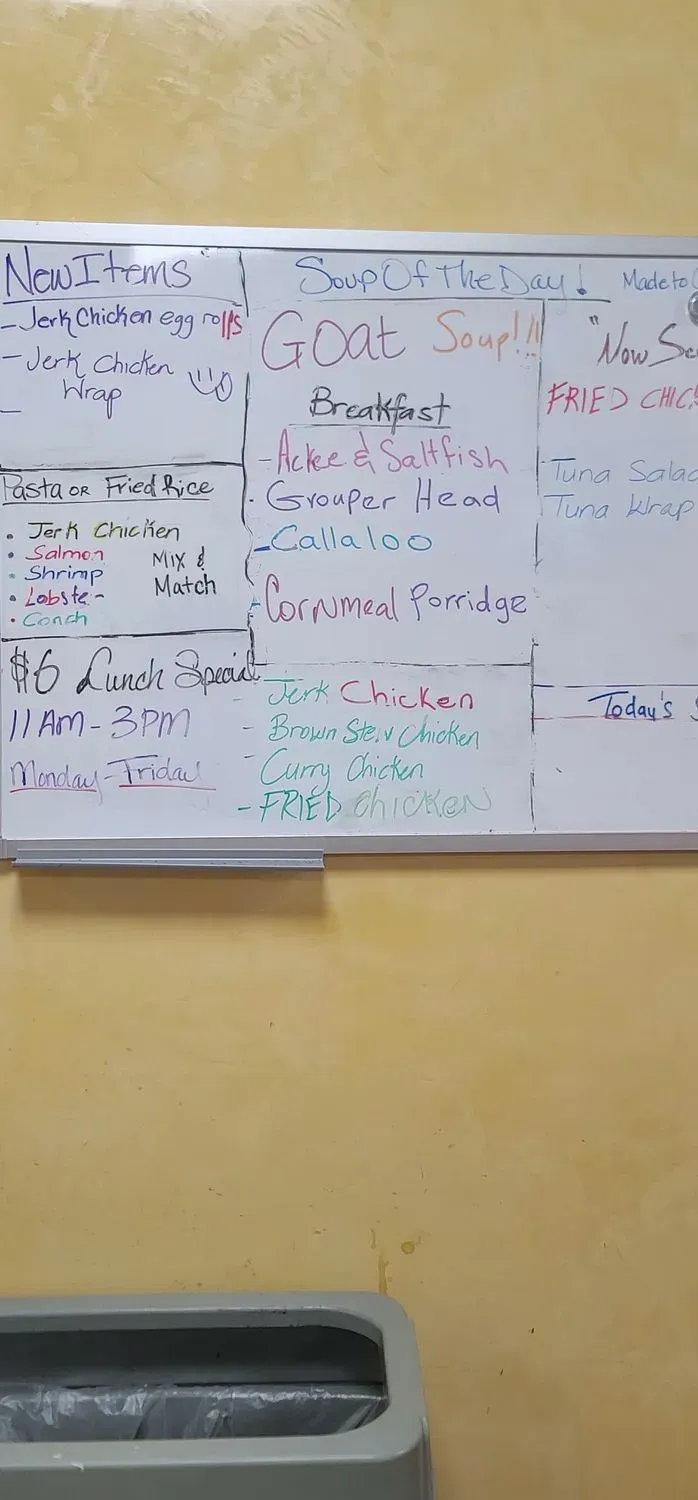 New Items
- Jerk Chicken egg rolls
- Jerk Chicken
Wrap
Pasta or Fried Rice
• Jerk Chicken
• Salmon
• Shrimp
• Lobster
• Conch
Mix &
Match
$6 Lunch Special
11AM - 3PM
Monday - Friday
Soup Of The Day!
Goat Soup!!!
Breakfast
- Ackee & Saltfish
• Grouper Head
- Callaloo
- Cornmeal Porridge
- Jerk Chicken
- Brown Stew Chicken
- Curry Chicken
- FRIED ChICKEN
Made to
"Now
FRIED
Tuna
Tuna Wrap
Today's